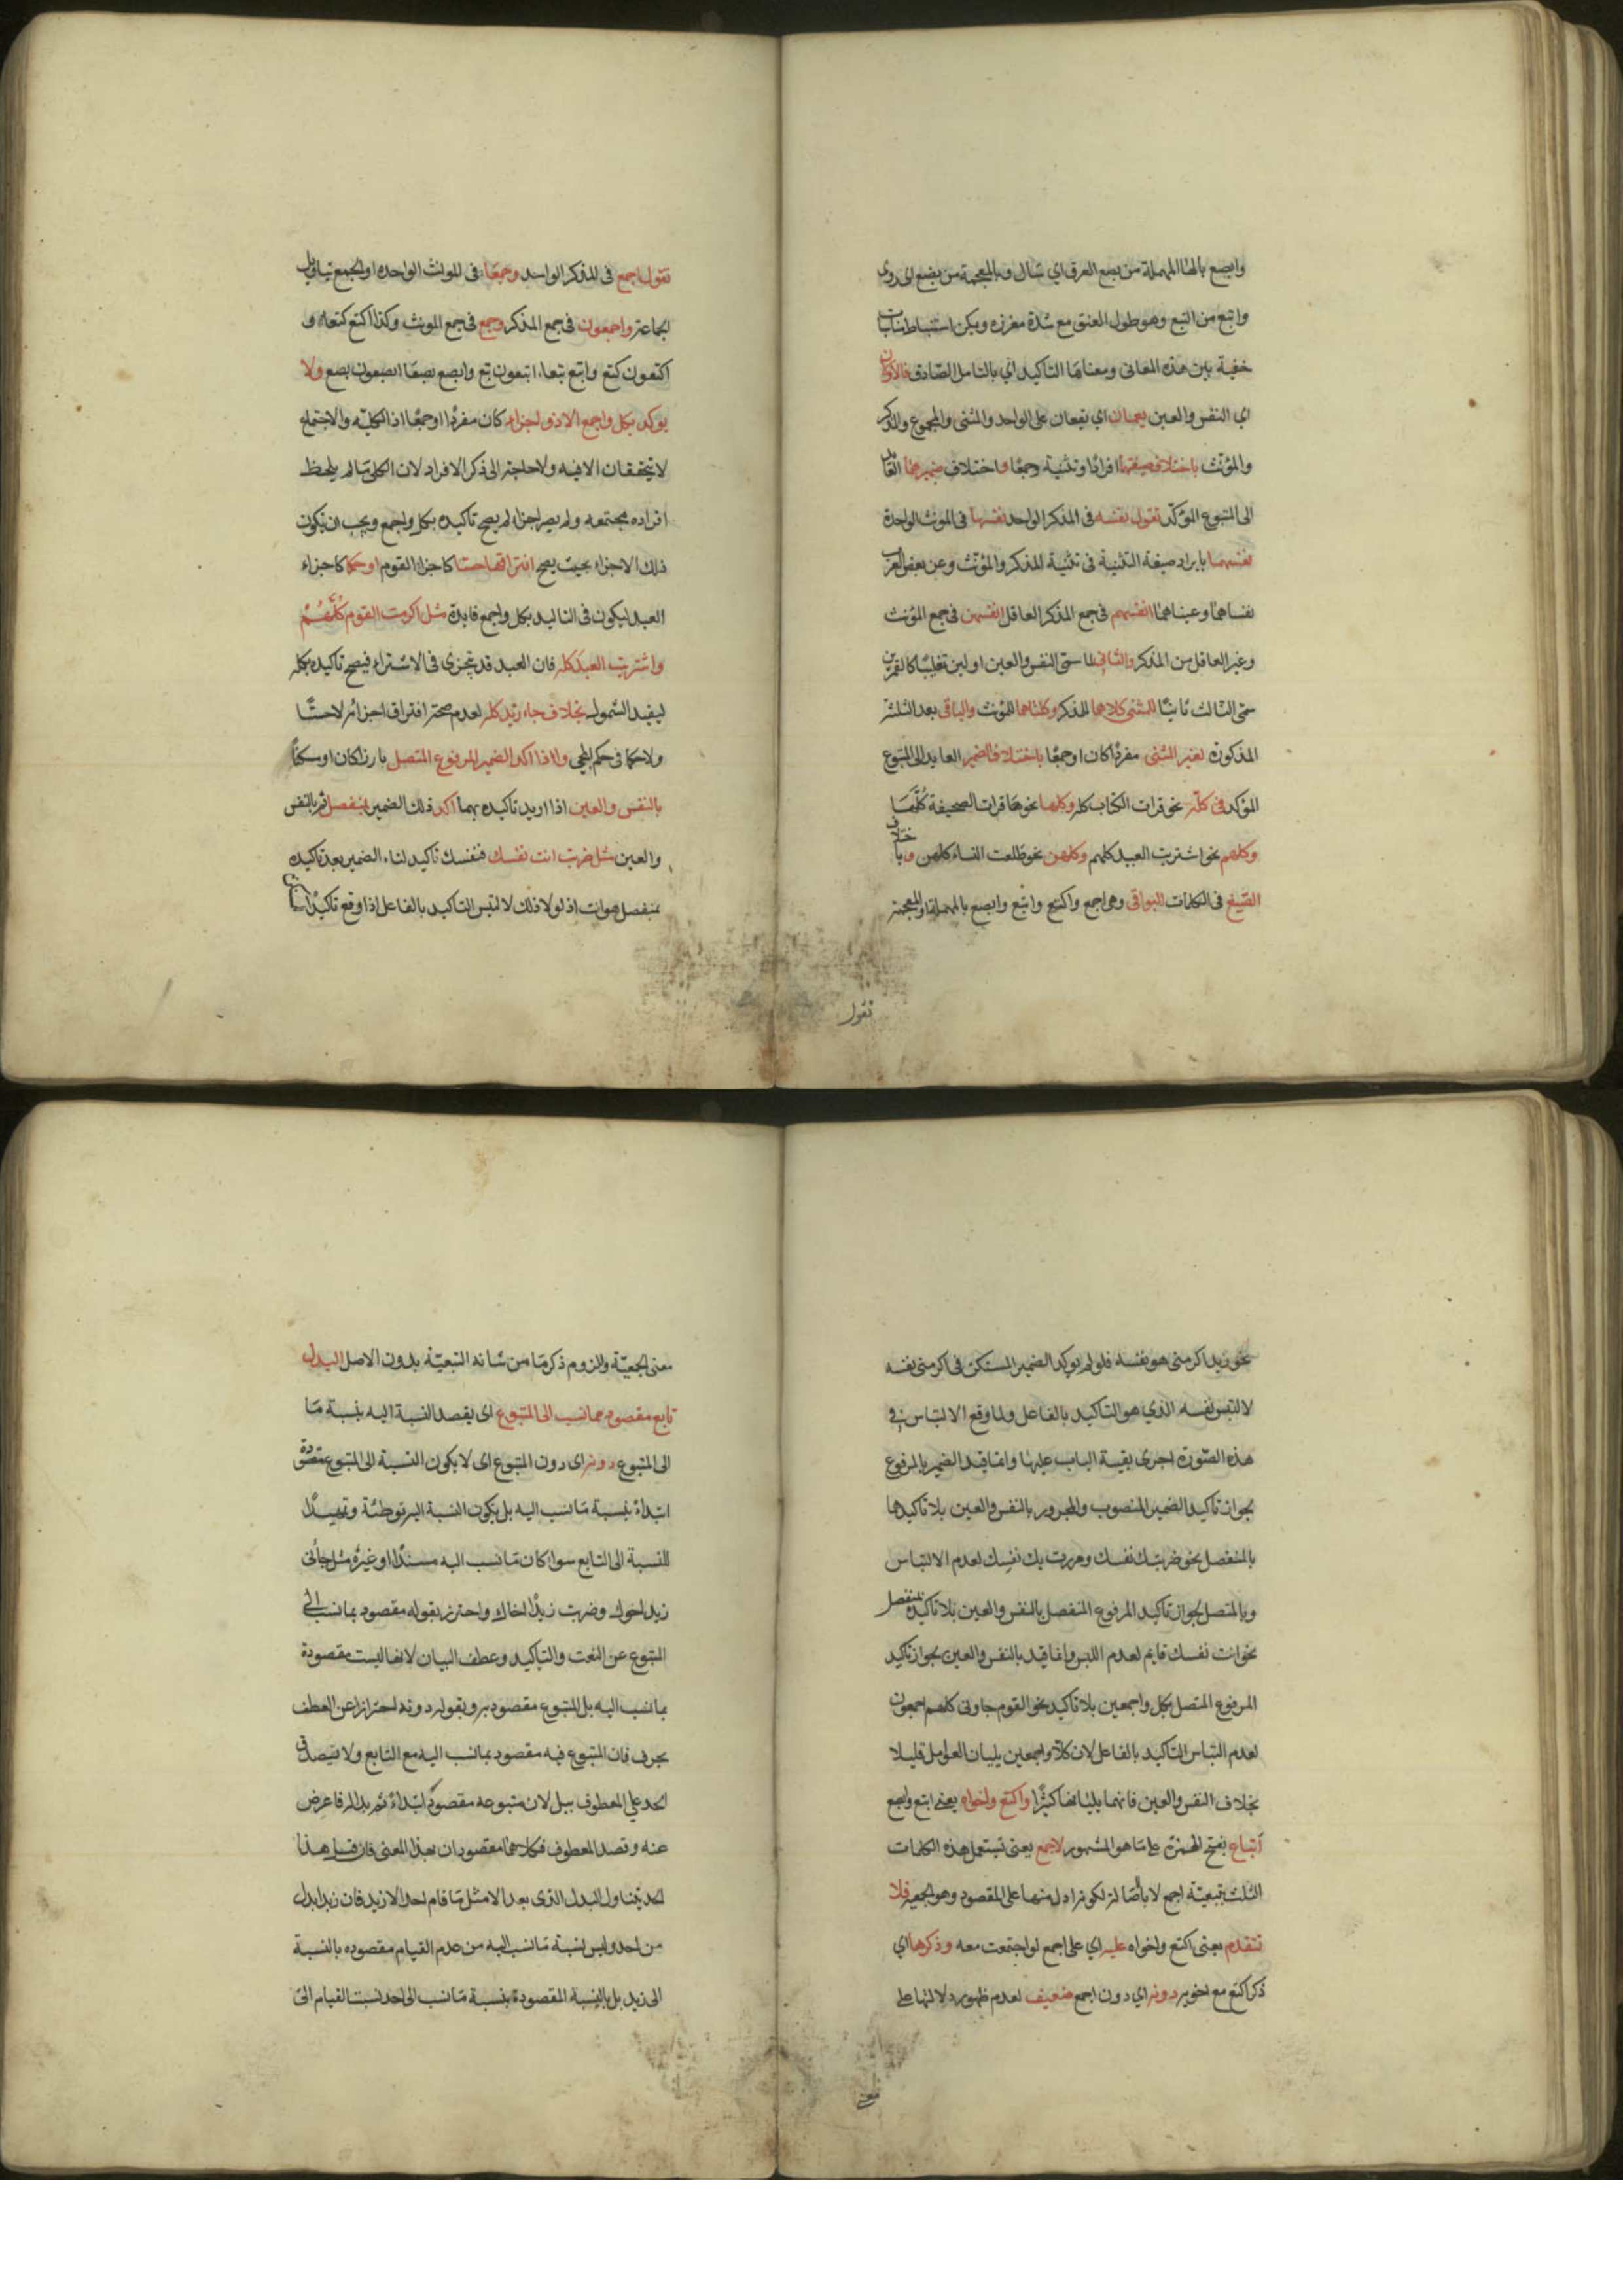 وابصع بالصاد المهملة من بصع العرق اي سال وبالمعجمة من بضع اى روى
واتبع من التبع وهو طول العنق مع شدة مغرزه ويمكن استنباط مناسبات
خفية بين هذه المعانى ومعناها التاكيد اي بالتامل الصادق فالاولان
اي النفس والعين يعمان اي يقعان على الواحد والمثنى والمجموع والمذكر
والمؤنث باختلاف صيغتهما افرادًا وتثنية وجمعًا واختلاف ضميرهما العايد
الى المتبوع المؤكد تقول نفسه فى المذكر الواحد نفسها فى المونث الواحدة
نفسهما بايراد صيغة التثنية فى تثنية المذكر والمؤنث وعن بعض العرب
نفساهما وعيناهما انفسهم فى جمع المذكر العاقل انفسهن فى جمع المؤنث
وغير العاقل من المذكر والثانى لما سمى النفس والعين اولين تغليبًا كالقمرين
سمى الثالث ثانيًا للمثنى كلاهما للمذكر وكلتاهما للمؤنث والباقى بعد الثلثة
المذكورة لغير المثنى مفردًا كان او جمعًا باختلاف الضمير العايد الى المتبوع
المؤكد فى كله نحو قرات الكتاب كله وكلها نحو قرات الصحيفة كلها
وكلهم نحو اشتريت العبيد كلهم وكلهن نحو طلعت النساء كلهن وباختلاف
الصيغ فى الكلمات البواقى وهى اجمع واكتع واتبع وابصع بالمهملة او المعجمة
تقول
تقول اجمع فى المذكر الواحد وجمعا فى المونث الواحدة او الجمع بتاويل
الجماعة واجمعون فى جمع المذكر وجمع فى جمع المونث وكذا اكتع كتعاء و
اكتعون كتع واتبع تبعاء اتبعون تبع وابصع بصعا ابصعون بصع ولا
يوكد بكل واجمع الا ذو اجزاء كان مفردًا او جمعًا اذ الكلية والاجتماع
لا يتحققان الا فيه ولا حاجة الى ذكر الافراد لان الكلى ما لم يلحظ
افراده مجتمعه ولم يصر اجزاء لم يصح تاكيده بكل واجمع ويجب ان يكون
ذلك الاجزاء بحيث يصح افتراقها حسًا كاجزاء القوم او حكمًا كاجزاء
العبد ليكون فى التاكيد بكل واجمع فايدة مثل اكرمت القوم كلهم
واشتريت العبد كله فان العبد قد يتجزى فى الاشتراء فيصح تاكيده بكله
ليفيد الشمول بخلاف جاء زيد كله لعدم صحة افتراق اجزائه لا حسًا
ولا حكما فى حكم المجى واذا اكد الضمير المرفوع المتصل بارزا كان او مستكنًا
بالنفس والعين اذا اريد تاكيده بهما اكد ذلك الضمير بمنفصل ثم بالنفس
والعين مثل ضربت انت نفسك فنفسك تاكيد لتاء الضمير بعد تاكيده
بمنفصل هو انت اذ لولا ذلك لالتبس التاكيد بالفاعل اذا وقع تاكيدًا
نحو زيد اكرمنى هو نفسه فلو لم يوكد الضمير المستكن فى اكرمنى نفسه
لالتبس نفسه الذي هو التاكيد بالفاعل ولما وقع الالتباس في
هذه الصورة اجرى بقية الباب عليها وانما قيد الضمير بالمرفوع
لجواز تاكيد الضمير المنصوب والمجرور بالنفس والعين بلا تاكيدهما
بالمنفصل نحو ضربتك نفسك ومررت بك نفسك لعدم الالتباس
وبالمتصل لجواز تاكيد المرفوع المنفصل بالنفس والعين بلا تاكيده بمنفصل
نحو انت نفسك قايم لعدم اللبس وانما قيد بالنفس والعين لجواز تاكيد
المرفوع المتصل بكل واجمعين بلا تاكيد نحو القوم جاونى كلهم اجمعون
لعدم التباس التاكيد بالفاعل لان كلا واجمعين يليان العوامل قليلا
بخلاف النفس والعين فانهما يليانها كثيرًا واكتع واخواه يعنى اتبع وابصع
اتباع بفتح الهمزة على ما هو المشهور لاجمع يعنى تستعمل هذه الكلمات
الثلث بتبعية اجمع لا باصالة لكونه ادل منها على المقصود وهو الجمعية فلا
تتقدم يعنى اكتع واخواه عليه اي على اجمع لو اجتمعت معه وذكرها اي
ذكر اكتع مع اخويه دونه اي دون اجمع ضعيف لعدم ظهور دلالتها على
معنى
معنى الجمعية ولزوم ذكر ما من شانه التبعية بدون الاصل البدل
تابع مقصود بما نسب الى المتبوع اى يقصد النسبة اليه بنسبة ما
الى المتبوع دونه اى دون المتبوع اى لا يكون النسبة الى المتبوع مقصودة
ابتداء بنسبة ما نسب اليه بل يكون النسبة اليه توطئة وتمهيدًا
للنسبة الى التابع سواء كان ما نسب اليه مسندًا او غيره مثل جاءنى
زيد اخوك وضربت زيدًا اخاك واحترز بقوله مقصود بما نسب الى
المتبوع عن النعت والتاكيد وعطف البيان لانها ليست مقصودة
بما نسب اليه بل المتبوع مقصود به وبقوله دونه احترازًا عن العطف
بحرف فان المتبوع فيه مقصود بما نسب اليه مع التابع ولا يصدق
الحد على المعطوف ببل لان متبوعه مقصود ابتداء ثم بدا له فاعرض
عنه وقصد المعطوف فكلاهما مقصودان بهذا المعنى فان قيل هذا
الحد يتناول البدل الذى بعد الا مثل ما قام احد الا زيد فان زيدا بدل
من احد وليس نسبة ما نسب اليه من عدم القيام مقصوده بالنسبة
الى زيد بل بالنسبة المقصودة بنسبة ما نسب الى احد نسبت القيام الى